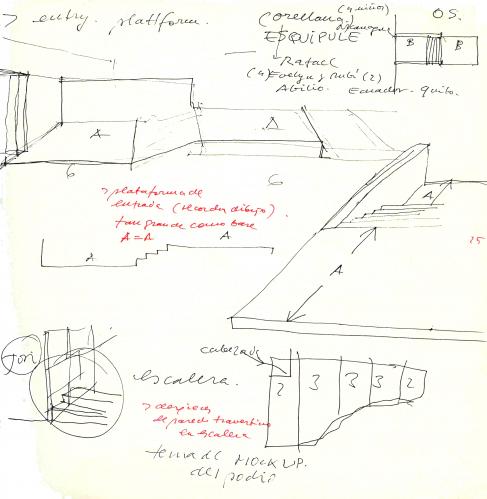 > entry. plattform.
Orellana. (4 niños)
O S.
ESQUIPULE
B B
Rafael
(4) Evelyn y Rubí (2)
Abilio. Ecuador - quito.
A
A
6
6
> plataforma de
entrada (recordar dibujo).
tan grande como base
A = A
A
A
A
A
25
Tori
cabezada
escalera.
2 3 3 3 2
> despiece
de pared travertino
en escalera
tema del MOCK UP.
del podio